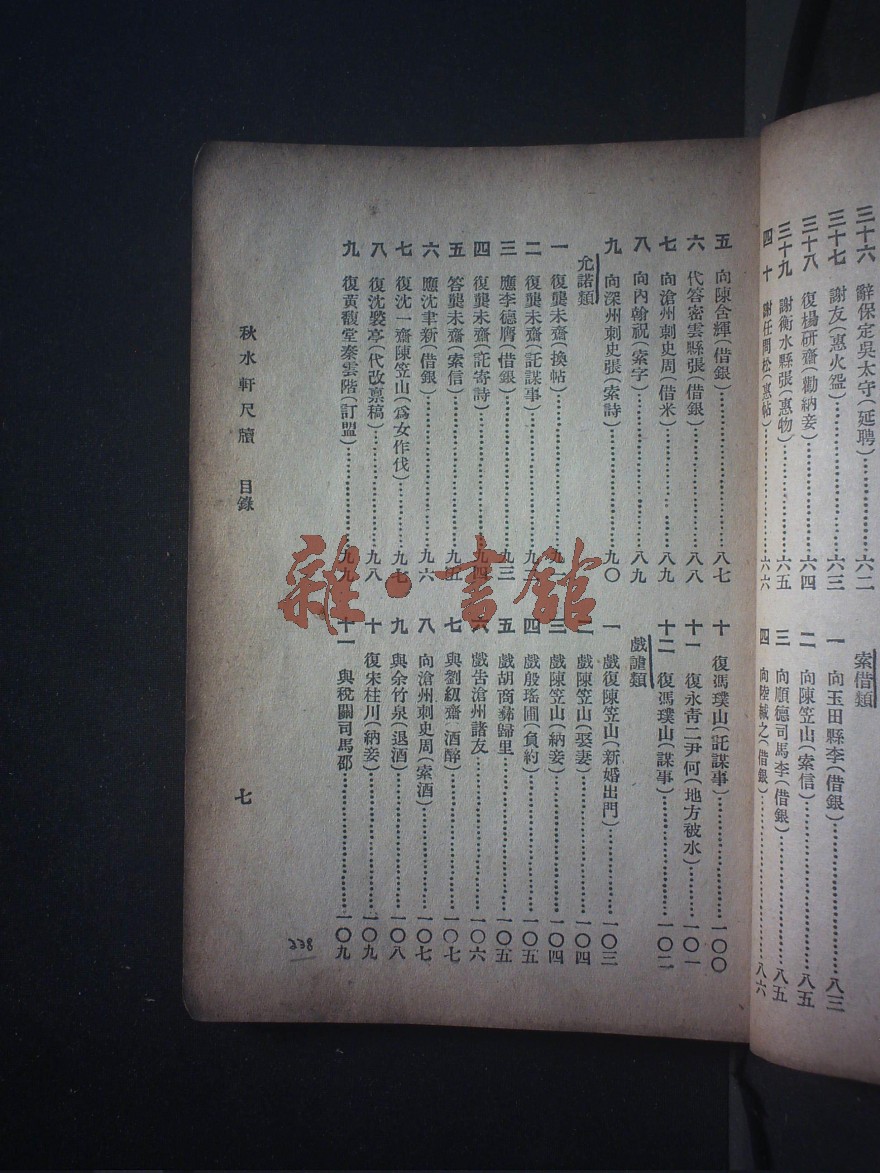 三十六 辭保定吳太守(延聘)……六二
三十七 謝友(惠火盌)……六三
三十八 復楊研齋(勸納妾)……六四
三十九 謝衡水縣張(惠物)……六五
四十 謝任問松(惠帖)……六六
索借類
一 向玉田縣李(借銀)……八三
二 向陳笠山(索信)……八五
三 向順德司馬李(借銀)……八五
四 向陸緘之(借銀)……八六
五 向陳含輝(借銀)……八七
六 代答密雲縣張(借銀)……八八
七 向滄州刺史周(借米)……八九
八 向內翰祝(索字)……八九
九 向深州刺史張(索詩)……九〇
允諾類
一 復龔未齋(換帖)……九
二 復龔未齋(託謀事)……九
三 應李德膺(借銀)……九三
四 復龔未齋(託寄詩)……九四
五 答龔未齋(索信)……九五
六 應沈聿新(借銀)……九六
七 復沈一齋陳笠山(爲女作伐)……九七
八 復沈娶亭(代改禀稿)……九八
九 復黃馥堂秦雲階(訂盟)……九九
十 復馮璞山(託謀事)……一〇〇
十一 復永靑二尹何(地方被水)……一〇一
十二 復馮璞山(謀事)……一〇二
戲謔類
一 戲復陳笠山(新婚出門)……一〇三
二 戲陳笠山(娶妻)……一〇四
三 戲陳笠山(納妾)……一〇四
四 戲殷瑤圃(負約)……一〇五
五 戲胡商彝歸里……一〇五
六 戲告滄州諸友……一〇六
七 與劉紉齋(酒醉)……一〇七
八 向滄州刺史周(索酒)……一〇七
九 與余竹泉(退酒)……一〇八
十 復宋桂川(納妾)……一〇九
十一 與稅關司馬邵……一〇九
秋水軒尺牘 目錄
七
338
雜·書館